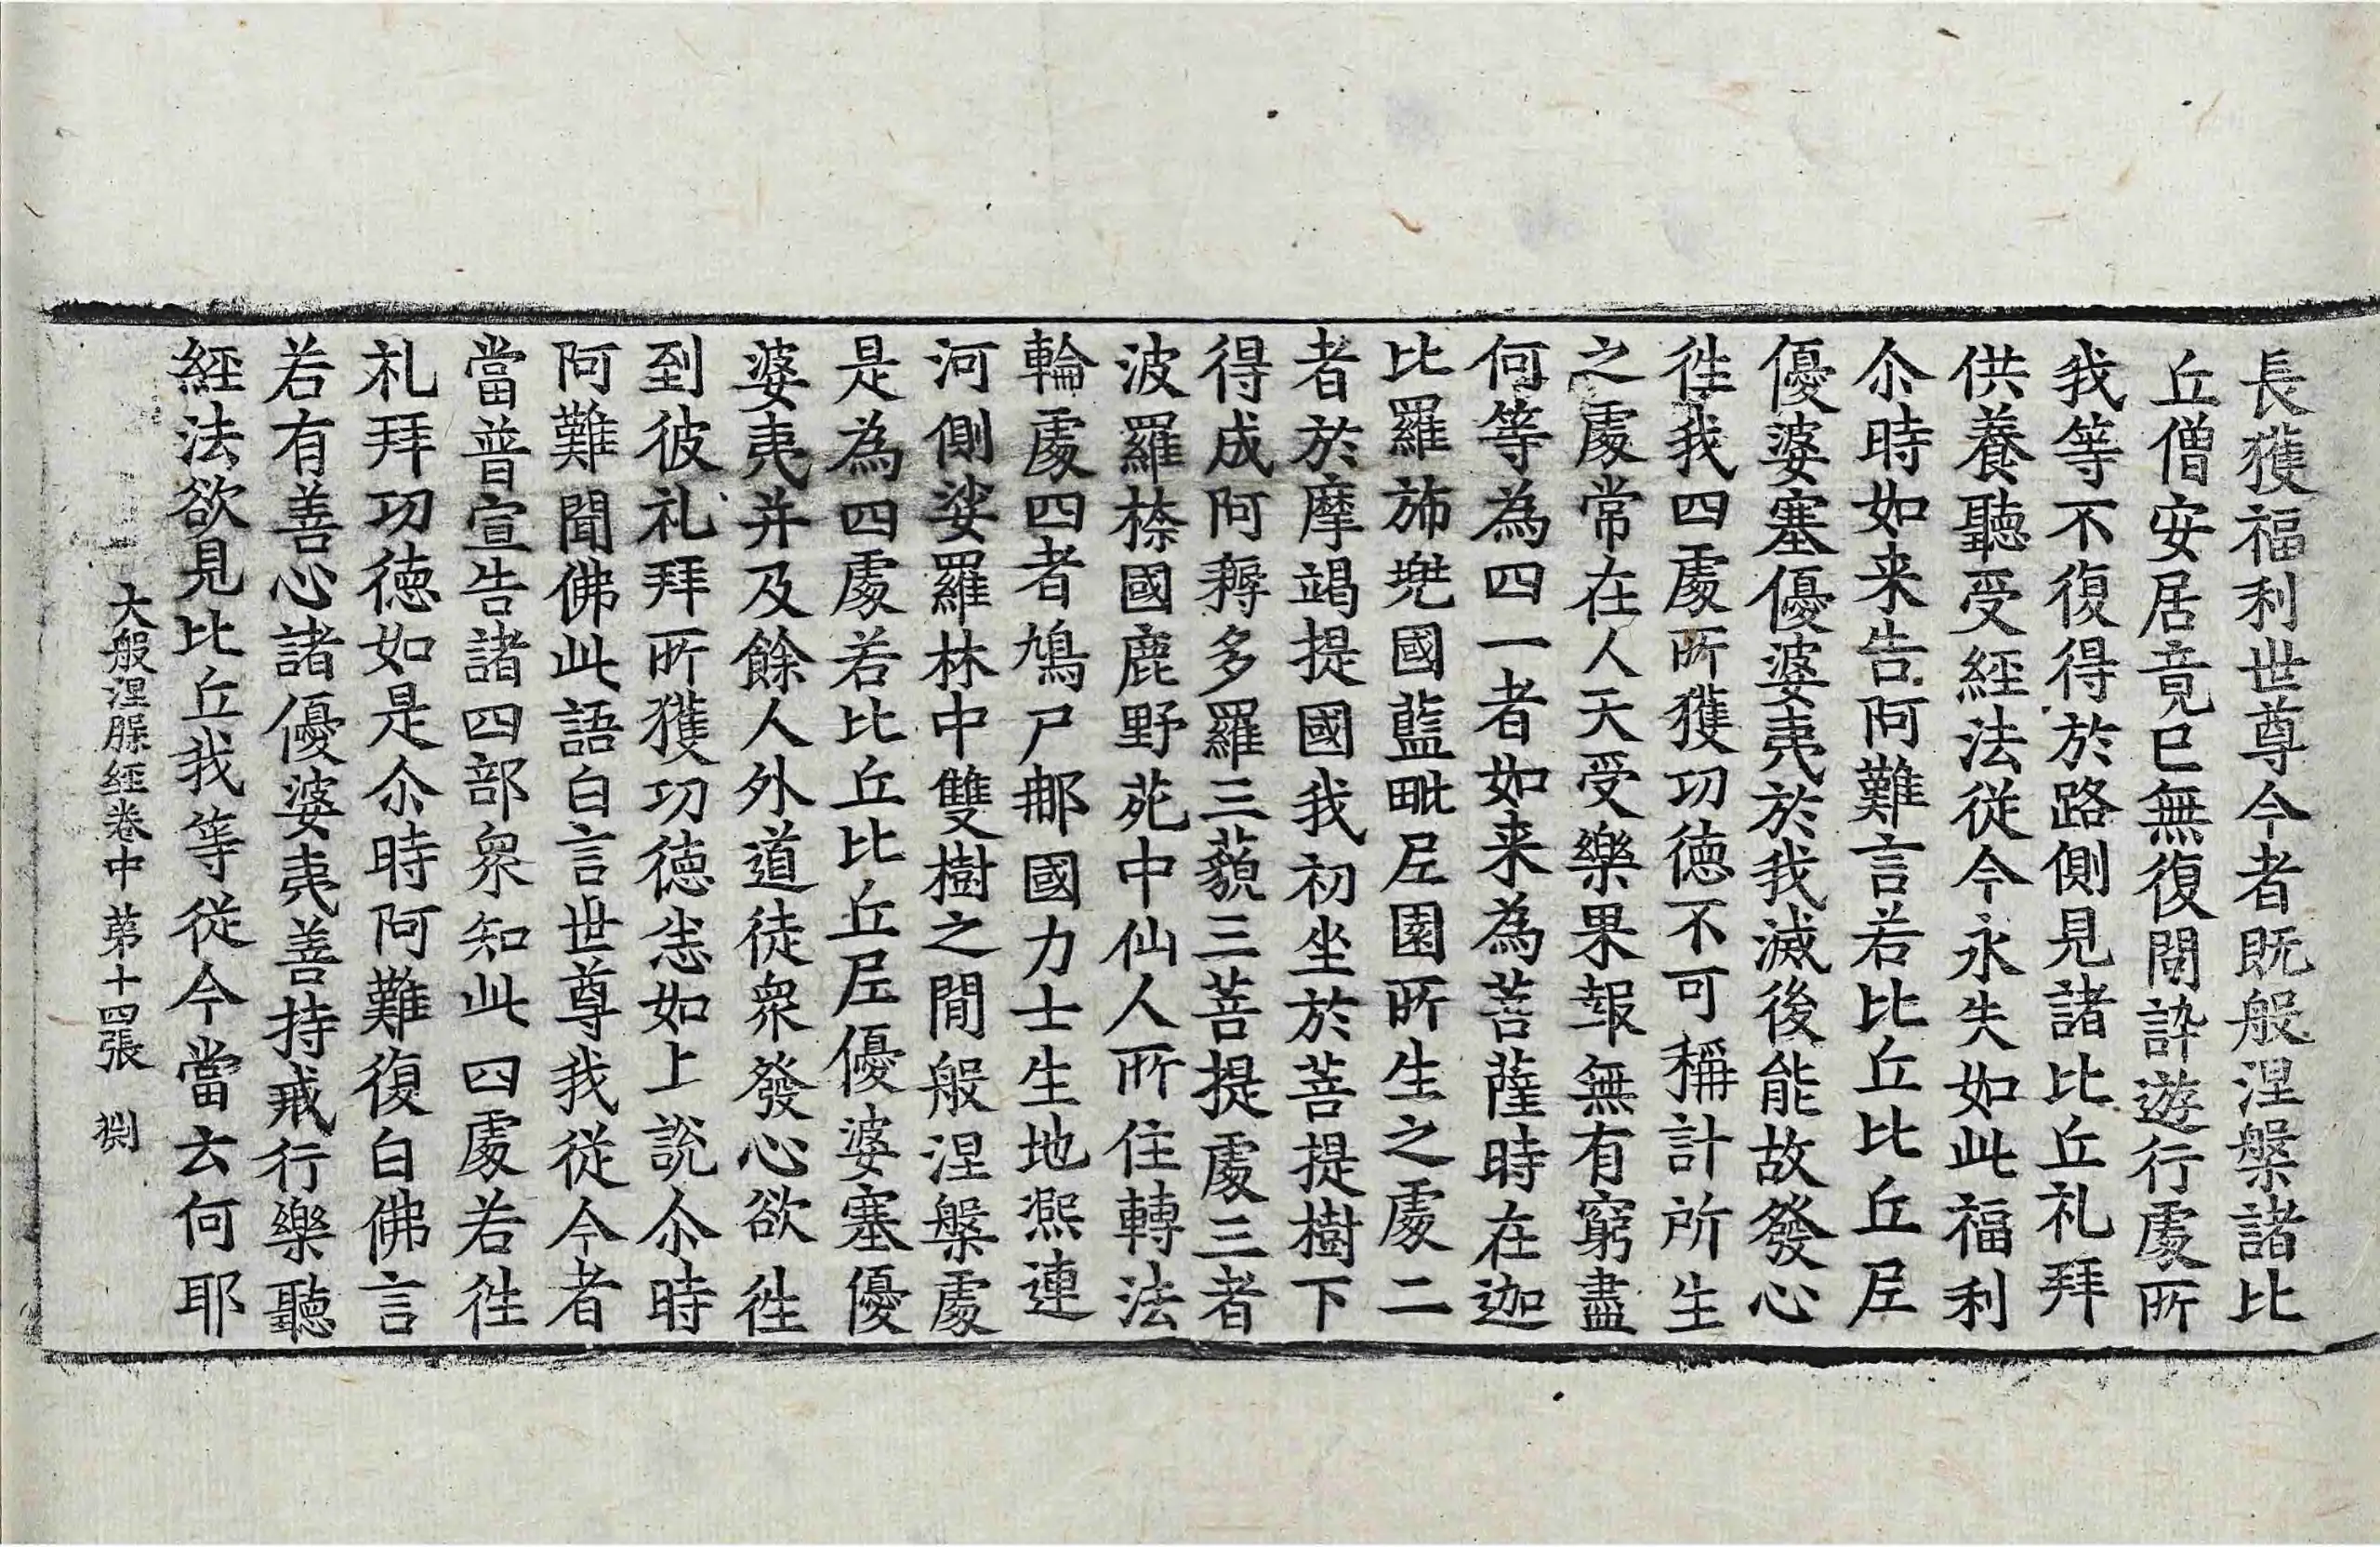 長獲福利世尊今者既般涅槃諸比
丘僧安居竟已無復閒訪遊行處所
我等不復得於路側見諸比丘礼拜
供養聽受經法從今永失如此福利
尒時如来告阿難言若比丘比丘尼
優婆塞優婆夷於我滅後能故發心
徃我四處所獲功德不可稱計所生
之處常在人天受樂果報無有窮盡
何等為四一者如来為菩薩時在迦
比羅斾兜國藍毗尼園所生之處二
者於摩竭提國我初坐於菩提樹下
得成阿耨多羅三藐三菩提處三者
波羅㮈國鹿野苑中仙人所住轉法
輪處四者鳩尸那國力士生地熈連
河側娑羅林中雙樹之間般涅槃處
是為四處若比丘比丘尼優婆塞優
婆夷并及餘人外道徒衆發心欲徃
到彼礼拜所獲功德悉如上說尒時
阿難聞佛此語白言世尊我從今者
當普宣告諸四部衆知此四處若徃
礼拜功德如是尒時阿難復白佛言
若有善心諸優婆夷善持戒行樂聽
經法欲見比丘我等從今當云何耶
大般涅槃經卷中 第十四張